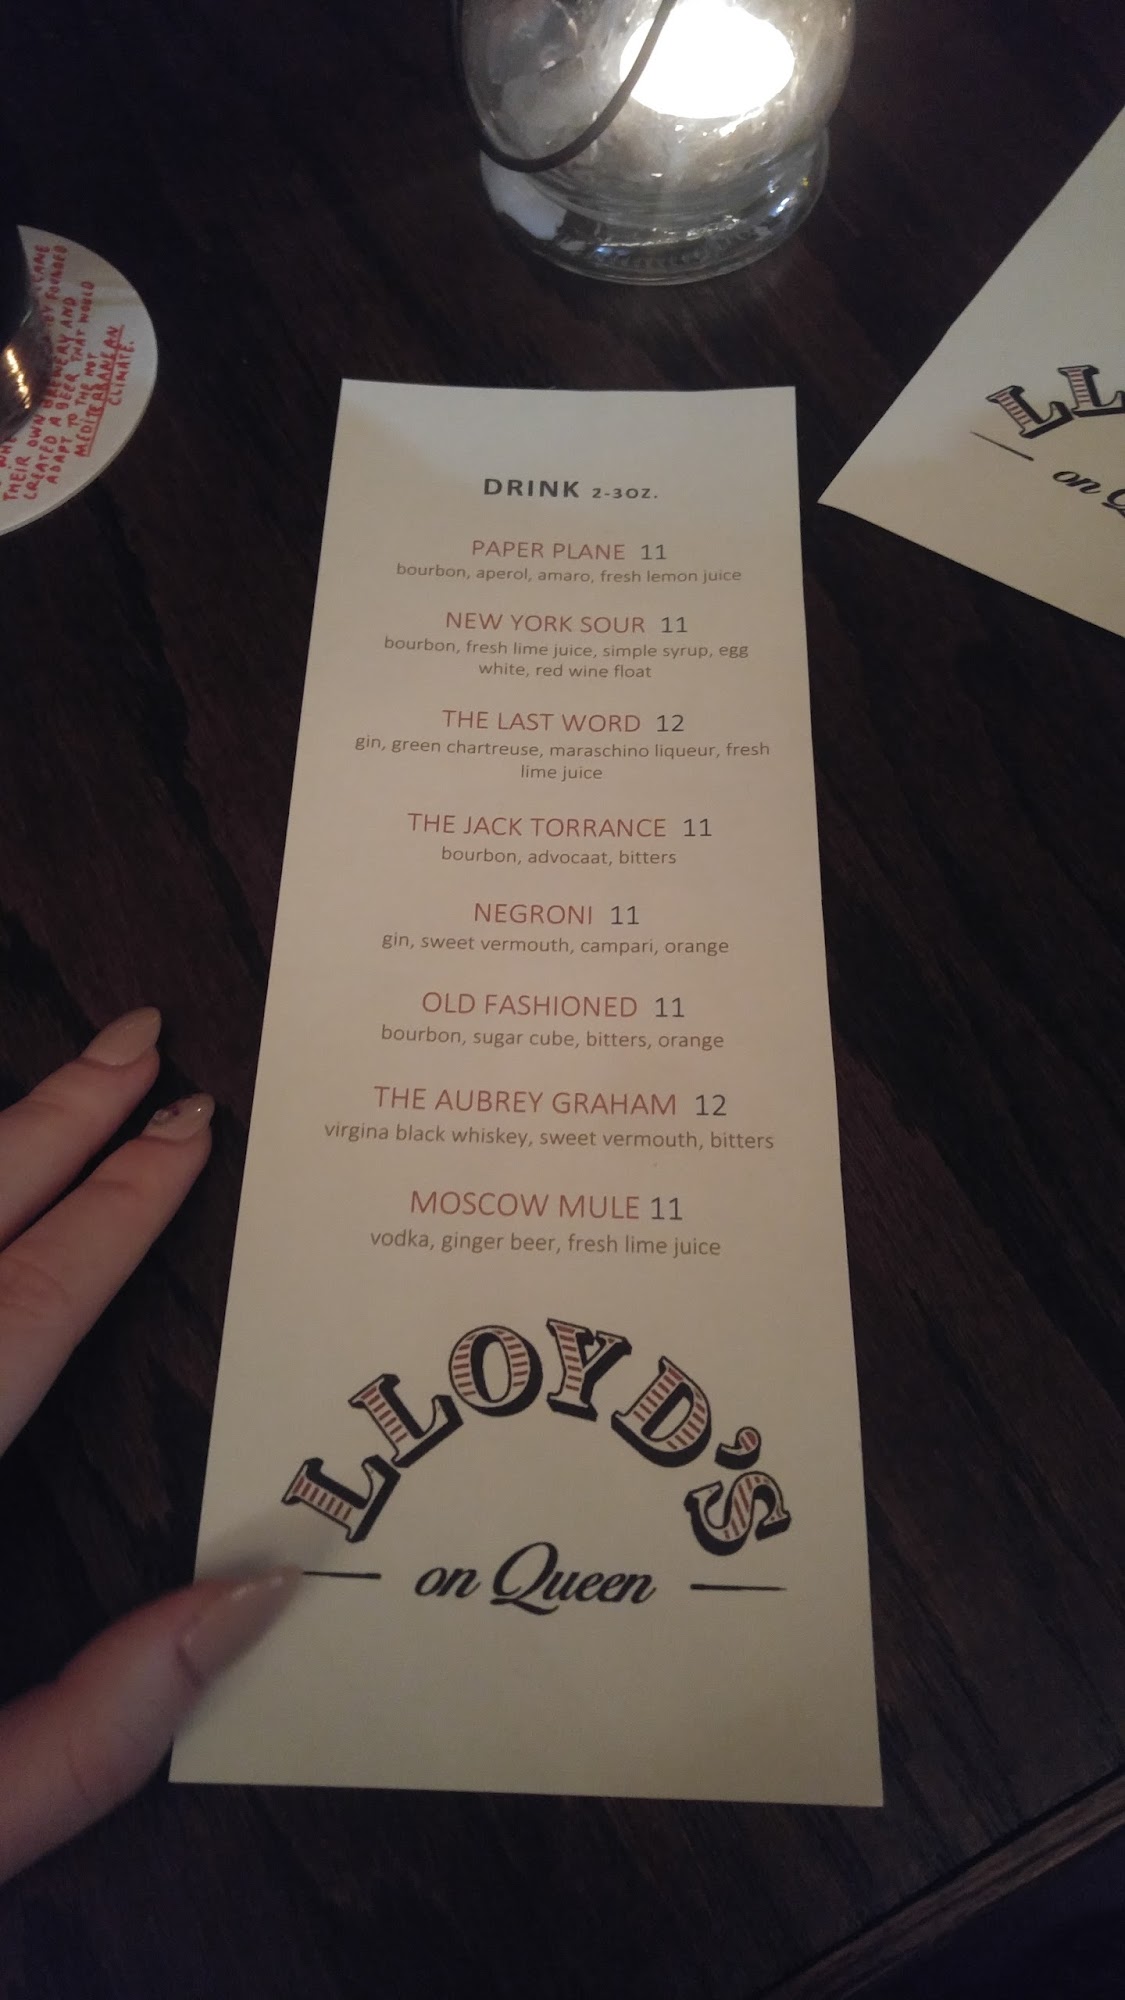 DRINK 2-3OZ.
PAPER PLANE 11
bourbon, aperol, amaro, fresh lemon juice
NEW YORK SOUR 11
bourbon, fresh lime juice, simple syrup, egg
white, red wine float
THE LAST WORD 12
gin, green chartreuse, maraschino liqueur, fresh
lime juice
THE JACK TORRANCE 11
bourbon, advocaat, bitters
NEGRONI 11
gin, sweet vermouth, campari, orange
OLD FASHIONED 11
bourbon, sugar cube, bitters, orange
THE AUBREY GRAHAM 12
virgina black whiskey, sweet vermouth, bitters
MOSCOW MULE 11
vodka, ginger beer, fresh lime juice
LLOYD'S
on Queen
FOUNDED
THEIR OWN BREWERY AND
CREATED A BEER THAT WOULD
ADAPT TO THE HOT
MEDITERRANEAN
CLIMATE.
LL
on